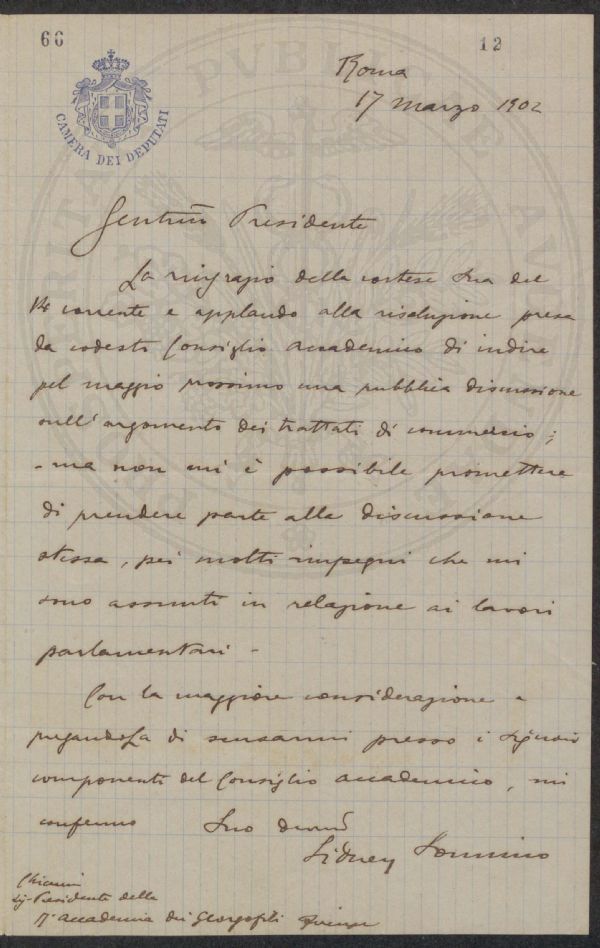 66
12
CAMERA DEI DEPUTATI
Roma
17 marzo 1902
Presidente
La ringrazio della cortese Sua del
14 corrente e applaudo alla risoluzione presa
da codesto Consiglio accademico di indire
pel maggio prossimo una pubblica discussione
sull'argomento dei trattati di commercio;
- ma non mi è possibile promettere
di prendere parte alla discussione
stessa, pei molti impegni che mi
sono assunti in relazione ai lavori
parlamentari -
Con la maggiore considerazione e
pregandola di scusarmi presso i Signori
componenti del Consiglio accademico, mi
confermo Suo
Sidney Sonnino
Sig. Presidente della
R. accademia dei Georgofili Firenze